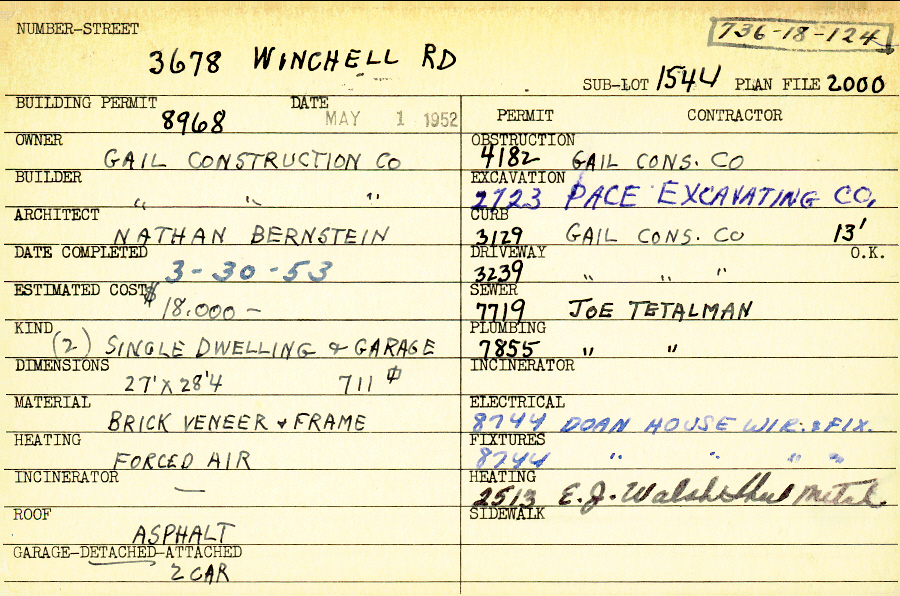 NUMBER-STREET
736-18-124
3678 WINCHELL RD
SUB-LOT 1544 PLAN FILE 2000
BUILDING PERMIT DATE
8968 MAY 1 1952
PERMIT CONTRACTOR
OWNER
GAIL CONSTRUCTION CO
OBSTRUCTION
4182 GAIL CONS. CO
BUILDER
" " "
EXCAVATION
2723 PACE EXCAVATING CO,
ARCHITECT
NATHAN BERNSTEIN
CURB
3129 GAIL CONS. CO 13'
DATE COMPLETED
3-30-53
DRIVEWAY O.K.
3239 " " "
ESTIMATED COST $
18.000 —
SEWER
7719 JOE TETALMAN
KIND
(2) SINGLE DWELLING & GARAGE
PLUMBING
7855 " "
DIMENSIONS
27' X 28'4 711 ⌀
INCINERATOR
MATERIAL
BRICK VENEER & FRAME
ELECTRICAL
8744 DOAN HOUSE WIR. & FIX.
HEATING
FORCED AIR
FIXTURES
8744 " " " "
INCINERATOR
—
HEATING
2513 E. J. Walsh Metal
ROOF
ASPHALT
SIDEWALK
GARAGE-DETACHED-ATTACHED
2 CAR